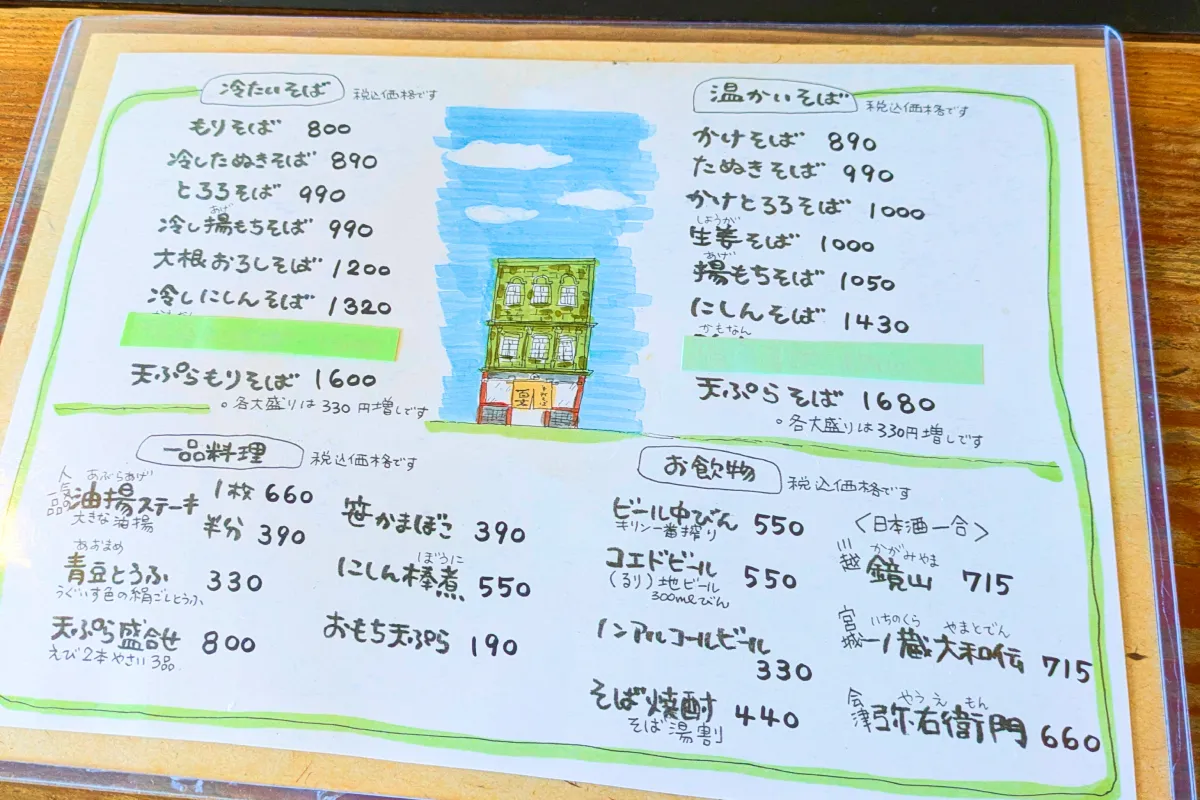 冷たいそば 税込価格です
もりそば 800
冷したぬきそば 890
とろろそば 990
あげ
冷し揚もちそば 990
大根おろしそば 1200
冷しにしんそば 1320
天ぷらもりそば 1600
。各大盛りは330円増しです
温かいそば 税込価格です
かけそば 890
たぬきそば 990
かけとろろそば 1000
しょうが
生姜そば 1000
あげ
揚もちそば 1050
にしんそば 1430
かもなん
天ぷらそば 1680
。各大盛りは330円増しです
一品料理 税込価格です
人気の一品
あぶらあげ
油揚ステーキ 1枚 660
大きな油揚 半分 390
あおまめ
青豆とうふ 330
うぐいす色の絹ごしとうふ
天ぷら盛合せ 800
えび2本やさい3品
笹かまぼこ 390
ぼうに
にしん棒煮 550
おもち天ぷら 190
お飲物 税込価格です
ビール中びん 550
キリン一番搾り
コエドビール 550
(るり)地ビール
300mlびん
ノンアルコールビール
330
そば焼酎 440
そば湯割
〈日本酒一合〉
かがみやま
川越 鏡山 715
いちのくら やまとでん
宮城 一ノ蔵大和伝 715
やうえもん
会津 弥右衛門 660